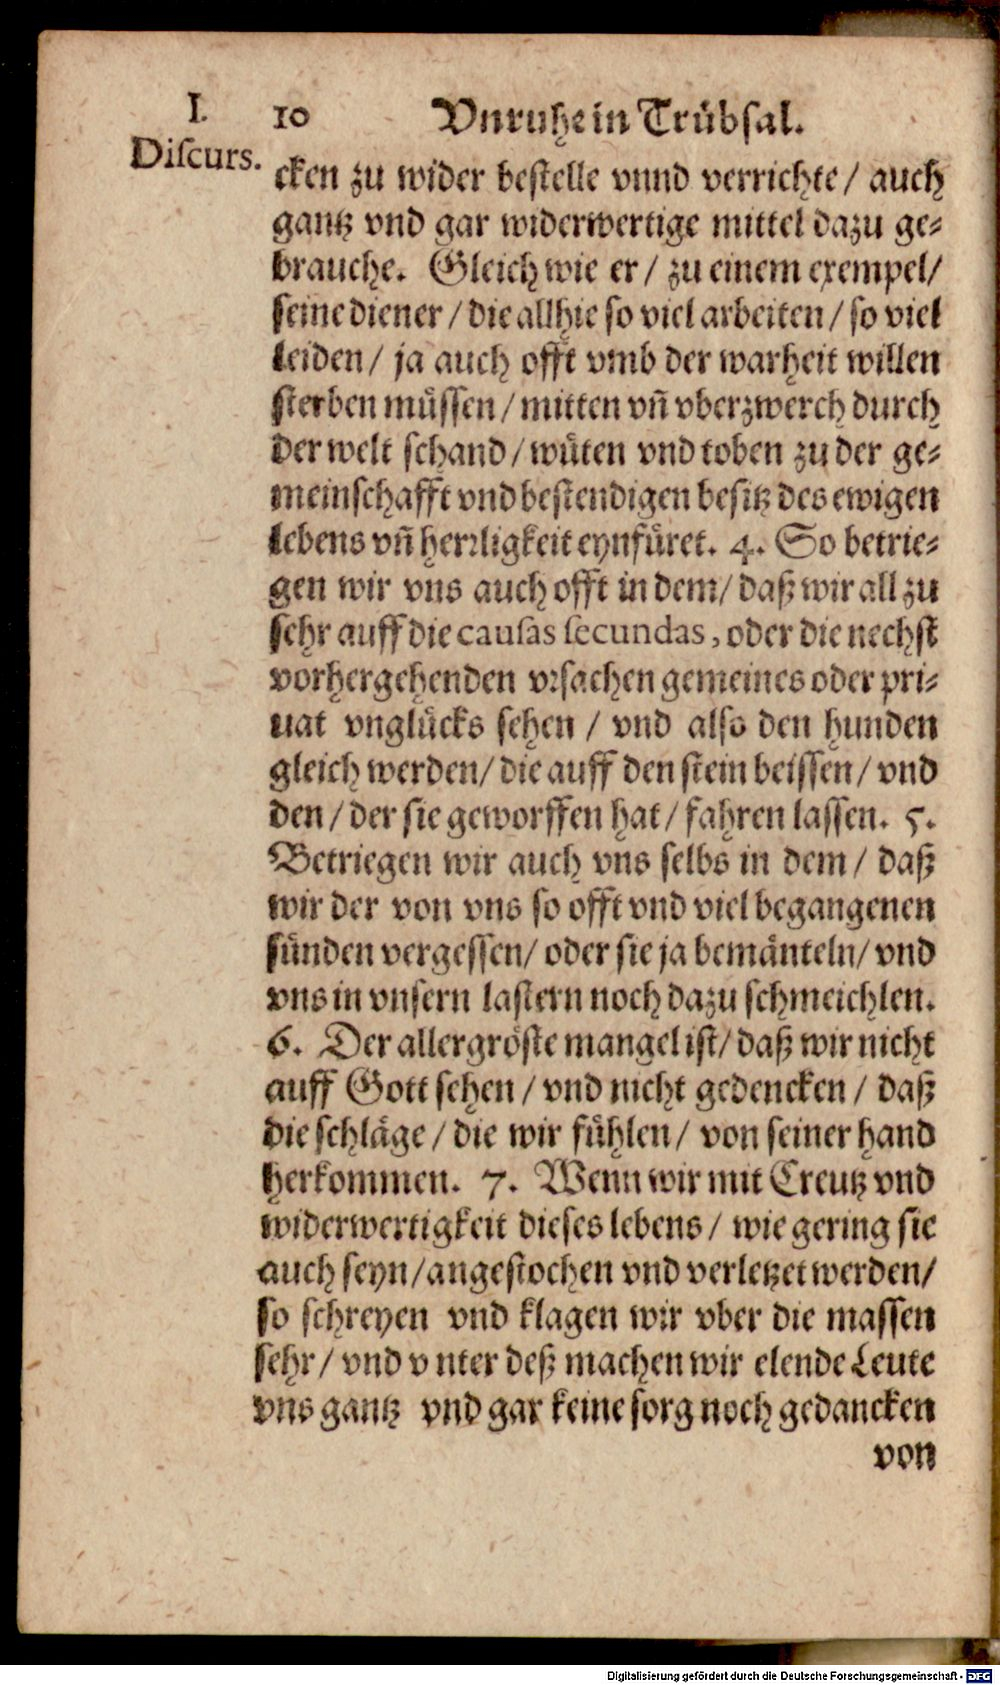 I. 10 Vnruhe in Trübsal.
Discurs.
cken zu wider bestelle vnnd verrichte / auch
gantz vnd gar widerwertige mittel dazu ge-
brauche. Gleich wie er / zu einem exempel/
seine diener / die allhie so viel arbeiten / so viel
leiden / ja auch offt vmb der warheit willen
sterben müssen / mitten vñ vberzwerch durch
der welt schand / wüten vnd toben zu der ge-
meinschafft vnd bestendigen besitz des ewigen
lebens vñ herrligkeit eynfüret. 4. So betrie-
gen wir vns auch offt in dem / daß wir all zu
sehr auff die causas secundas, oder die nechst
vorhergehenden vrsachen gemeines oder pri-
uat vnglücks sehen / vnd also den hunden
gleich werden / die auff den stein beissen / vnd
den / der sie geworffen hat / fahren lassen. 5.
Betriegen wir auch vns selbs in dem / daß
wir der von vns so offt vnd viel begangenen
sünden vergessen / oder sie ja bemänteln / vnd
vns in vnsern lastern noch dazu schmeichlen.
6. Der allergröste mangel ist / daß wir nicht
auff Gott sehen / vnd nicht gedencken / daß
die schläge / die wir fühlen / von seiner hand
herkommen. 7. Wenn wir mit Creutz vnd
widerwertigkeit dieses lebens / wie gering sie
auch seyn / angestochen vnd verletzet werden /
so schreyen vnd klagen wir vber die massen
sehr / vnd vnter deß machen wir elende Leute
vns gantz vnd gar keine sorg noch gedancken
von
Digitalisierung gefördert durch die Deutsche Forschungsgemeinschaft - DFG